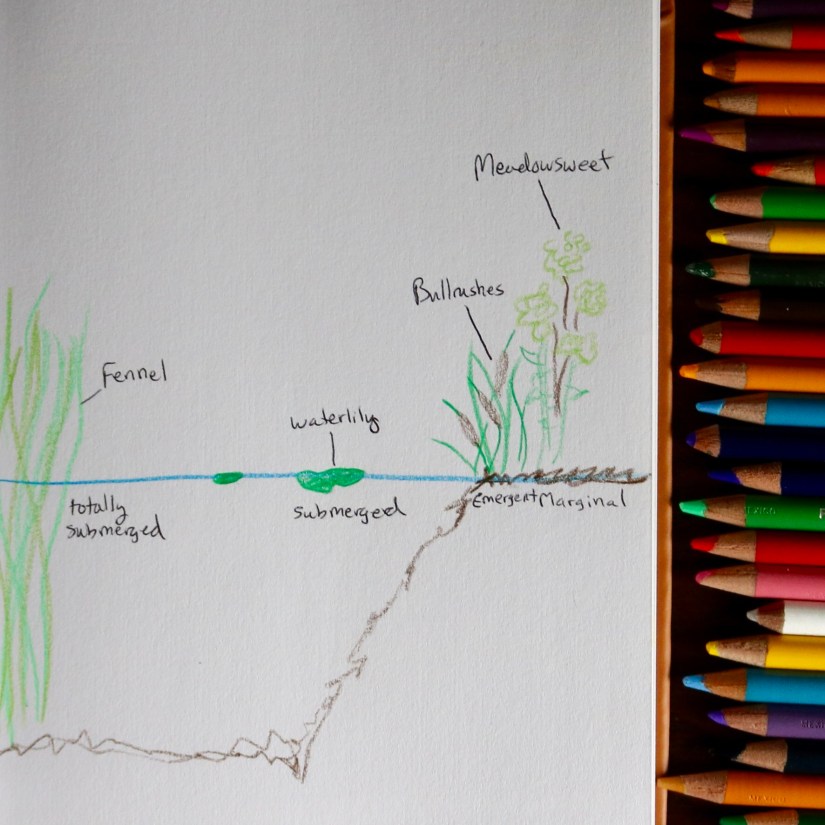 Meadowsweet
Bullrushes
Fennel
waterlily
totally
submerged
submerged
Emergent Marginal